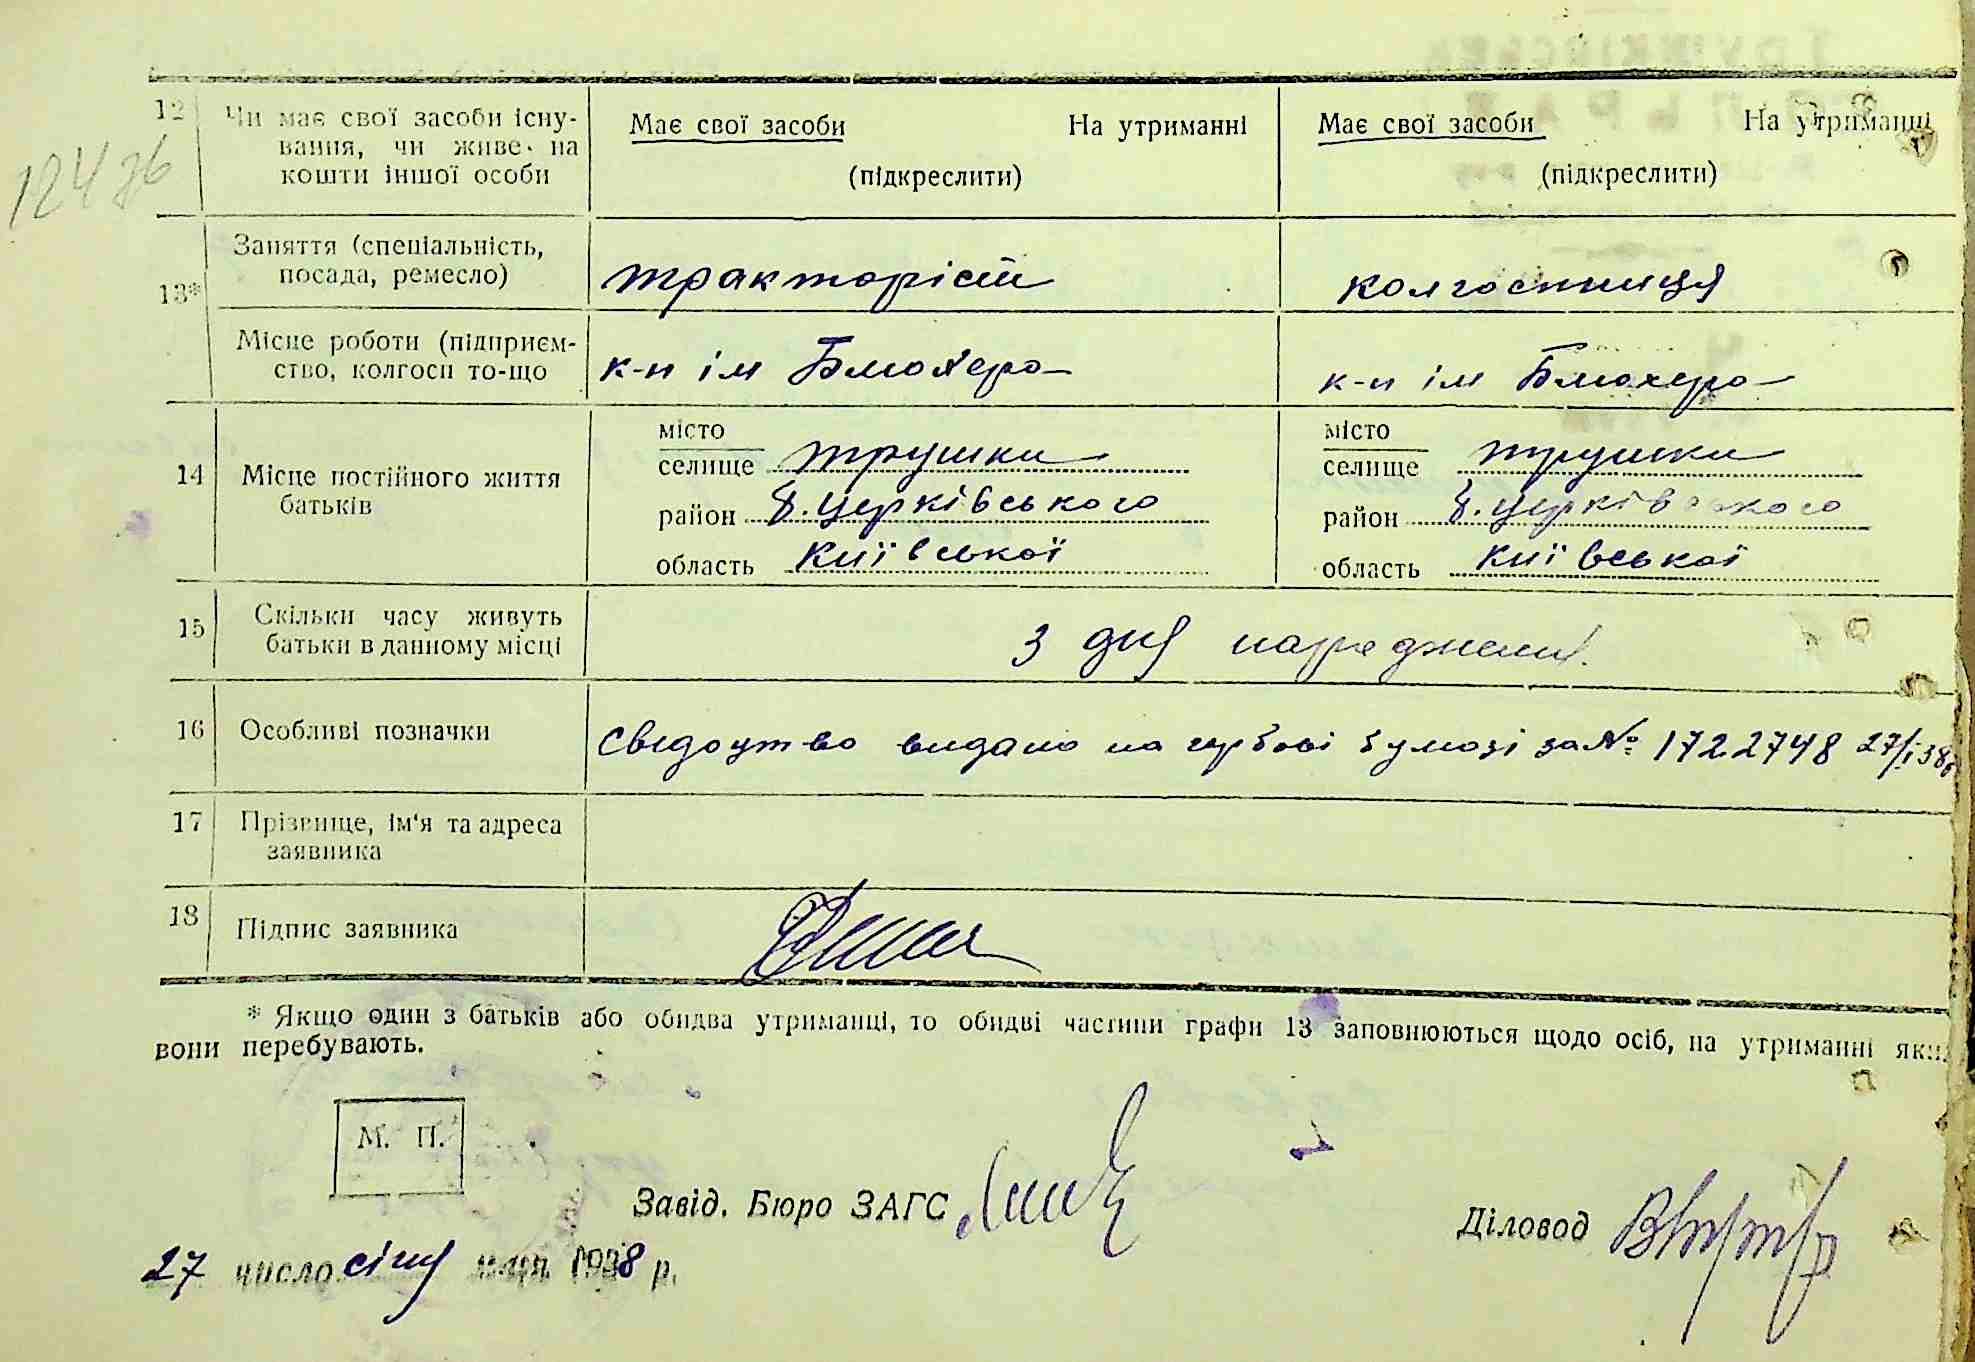 124 зв
12 Чи має свої засоби існу-
вання, чи живе на
кошти іншої особи
Має свої засоби На утриманні
(підкреслити)
Має свої засоби На утриманні
(підкреслити)
13* Заняття (спеціальність,
посада, ремесло)
тракторіст
колгоспниця
Місце роботи (підприєм-
ство, колгосп то-що
к-п ім Блюхера
к-п ім Блюхера
14 Місце постійного життя
батьків
місто
селище Трушки
район Б.Церківського
область Київської
місто
селище Трушки
район Б.Церківського
область Київської
15 Скільки часу живуть
батьки в данному місці
З дня народження.
16 Особливі позначки
Свідоцтво видано на гербові бумазі за № 1722748 27/I 38р
17 Прізвище, ім'я та адреса
заявника
18 Підпис заявника
* Якщо один з батьків або обидва утриманці, то обидві частини графи 13 заповнюються щодо осіб, на утриманні яких
вони перебувають.
М. П.
Завід. Бюро ЗАГС
Діловод
27 число січня м-ця 1938 р.